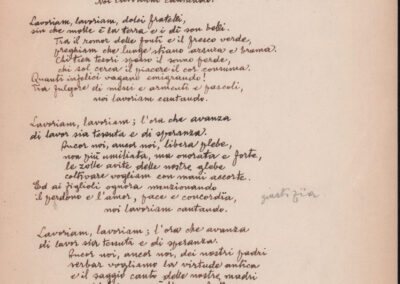 noi lavoriam cantando.
Lavoriam, lavoriam, dolci fratelli,
sin che molle è la terra e i dì son belli.
Tra il romor delle fonti e il fresco verde,
preghiam che lungi stiano arsura e brama.
Chi tien tesori spesso il sonno perde,
chi sol cerca il piacere il cor consuma.
Quanti infelici vagano emigrando!
Tra fulgore di messi e armenti e pascoli,
noi lavoriam cantando.
Lavoriam, lavoriam; l'ora che avanza
di lavor sia tessuta e di speranza.
Ancor noi, ancor noi, libera plebe,
non più umiliata, ma onorata e forte,
le zolle avite delle nostre glebe
coltivare vogliam con mani accorte.
Ed ai figlioli ognora menzionando
il perdono e l'amor, pace e concordia, giustizia
noi lavoriam cantando.
Lavoriam, lavoriam; l'ora che avanza
di lavor sia tessuta e di speranza.
Ancor noi, ancor noi, dei nostri padri
serbar vogliamo la virtude antica
e il saggio canto delle nostre madri